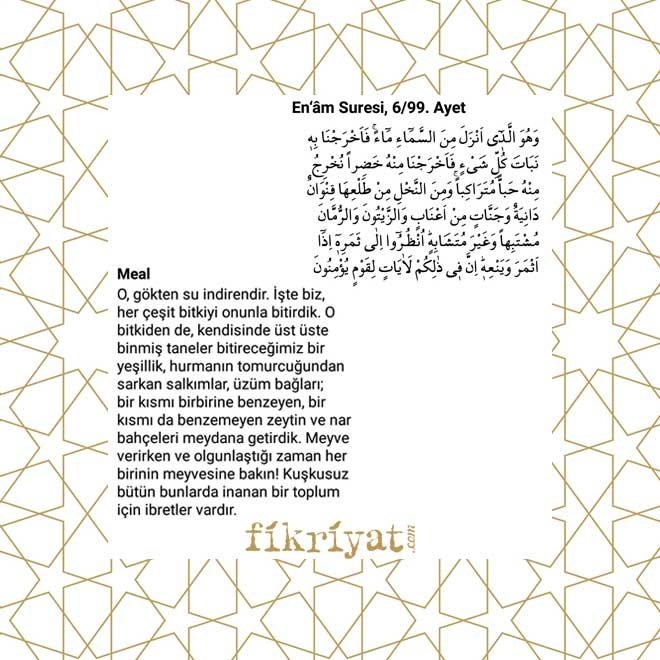 En‘âm Suresi, 6/99. Ayet
وَهُوَ الَّذٓي اَنْزَلَ مِنَ السَّمَٓاءِ مَٓاءًۚ فَاَخْرَجْنَا بِه۪
نَبَاتَ كُلِّ شَيْءٍ فَاَخْرَجْنَا مِنْهُ خَضِراً نُخْرِجُ
مِنْهُ حَباًّ مُتَرَاكِباًۚ وَمِنَ النَّخْلِ مِنْ طَلْعِهَا قِنْوَانٌ
دَانِيَةٌ وَجَنَّاتٍ مِنْ اَعْنَابٍ وَالزَّيْتُونَ وَالرُّمَّانَ
مُشْتَبِهاً وَغَيْرَ مُتَشَابِهٍۜ اُنْظُرُٓوا اِلٰى ثَمَرِه۪ٓ اِذَٓا
اَثْمَرَ وَيَنْعِه۪ۜ اِنَّ ف۪ي ذٰلِكُمْ لَاٰيَاتٍ لِقَوْمٍ يُؤْمِنُونَ
Meal
O, gökten su indirendir. İşte biz,
her çeşit bitkiyi onunla bitirdik. O
bitkiden de, kendisinde üst üste
binmiş taneler bitireceğimiz bir
yeşillik, hurmanın tomurcuğundan
sarkan salkımlar, üzüm bağları;
bir kısmı birbirine benzeyen, bir
kısmı da benzemeyen zeytin ve nar
bahçeleri meydana getirdik. Meyve
verirken ve olgunlaştığı zaman her
birinin meyvesine bakın! Kuşkusuz
bütün bunlarda inanan bir toplum
için ibretler vardır.
fikriyat.com